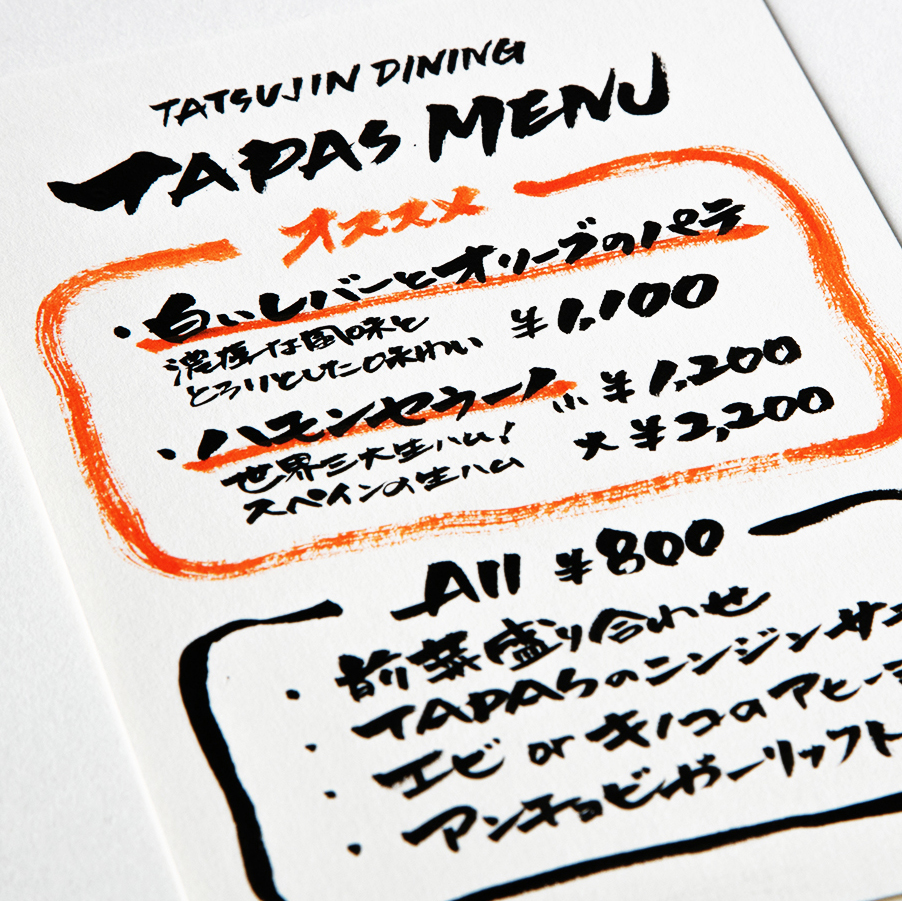 TATSUJIN DINING
TAPAS MENU
オススメ
・白いレバーとオリーブのパテ
濃厚な風味と
とろりとした口味わい ¥1,100
・ハモンセラーノ 小 ¥1,200
世界三大生ハム! 大 ¥2,200
スペインの生ハム
All ¥800
・前菜盛り合わせ
・TAPASのニンジンサ
・エビ or キノコのアヒー
・アンチョビガーリックフト